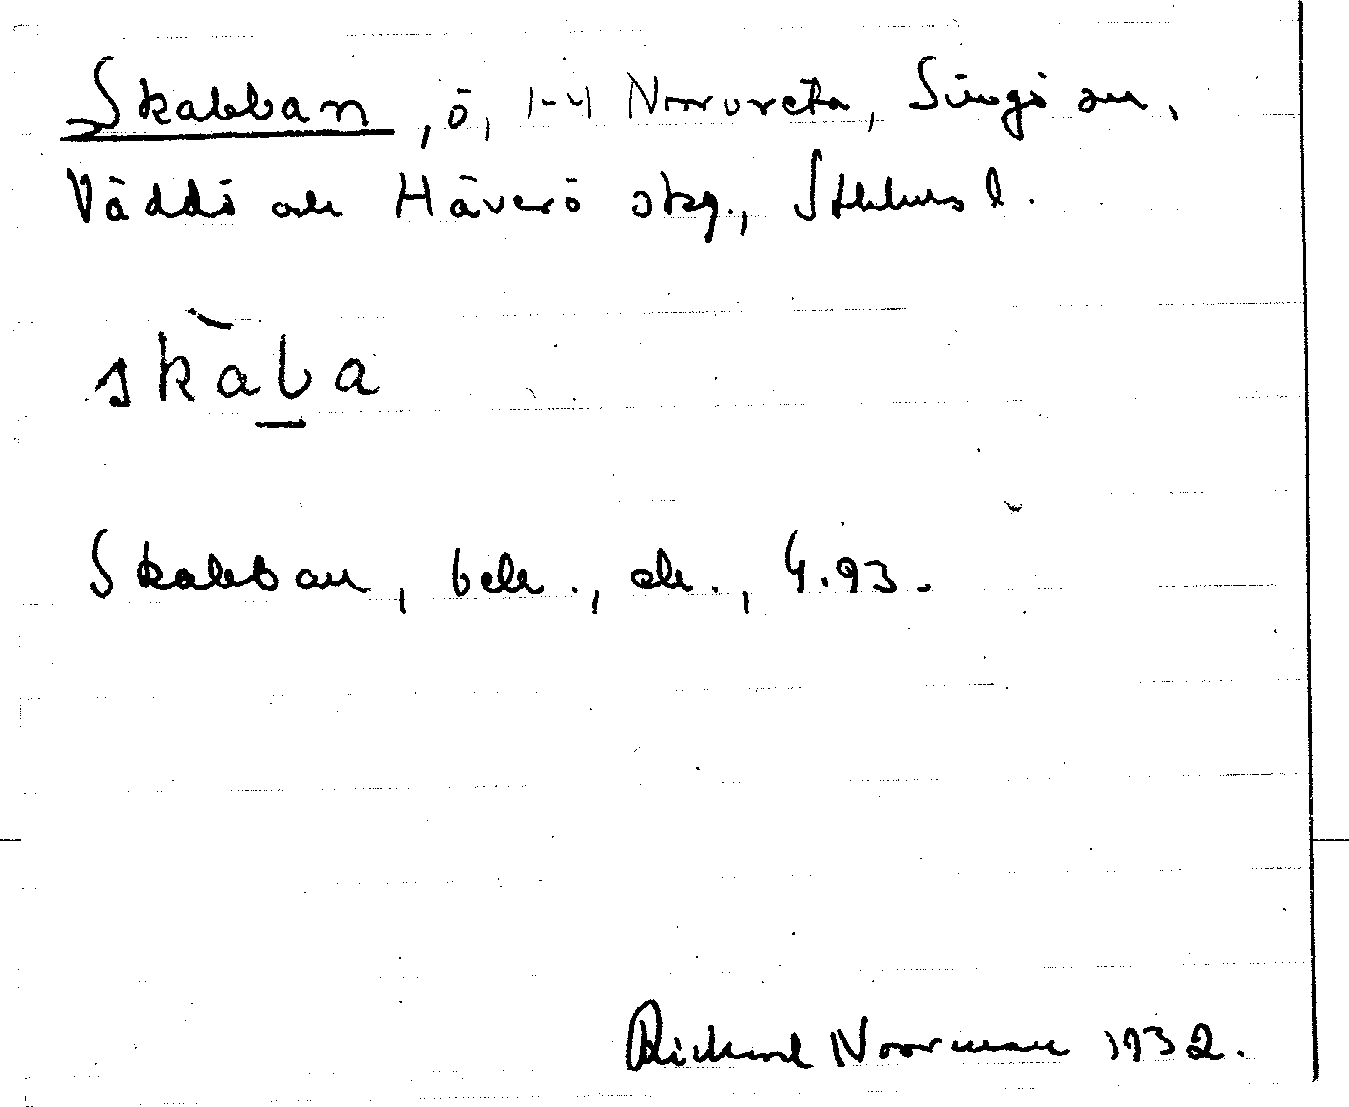 Skabban, ö, 1-4 Norrvreta, Singö sn,
Väddö och Häverö skg., Sthlms l.
skàba
Skabban, bek., ek., 4.93.
Richard Norrman 1932.